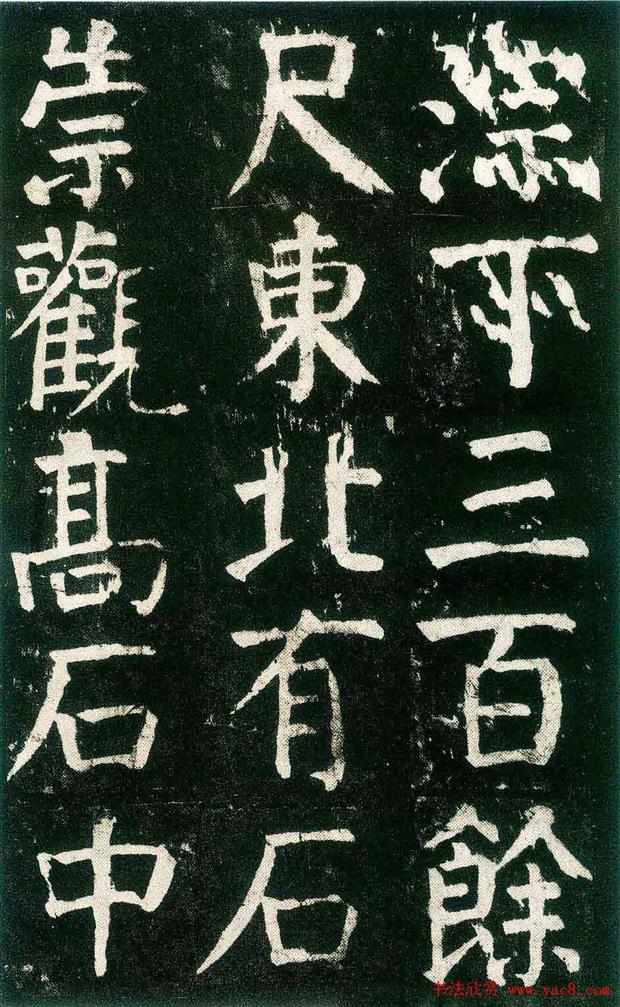 淙下三百餘
尺東北有石
崇觀髙石中
书法欣赏 www.yac8.com